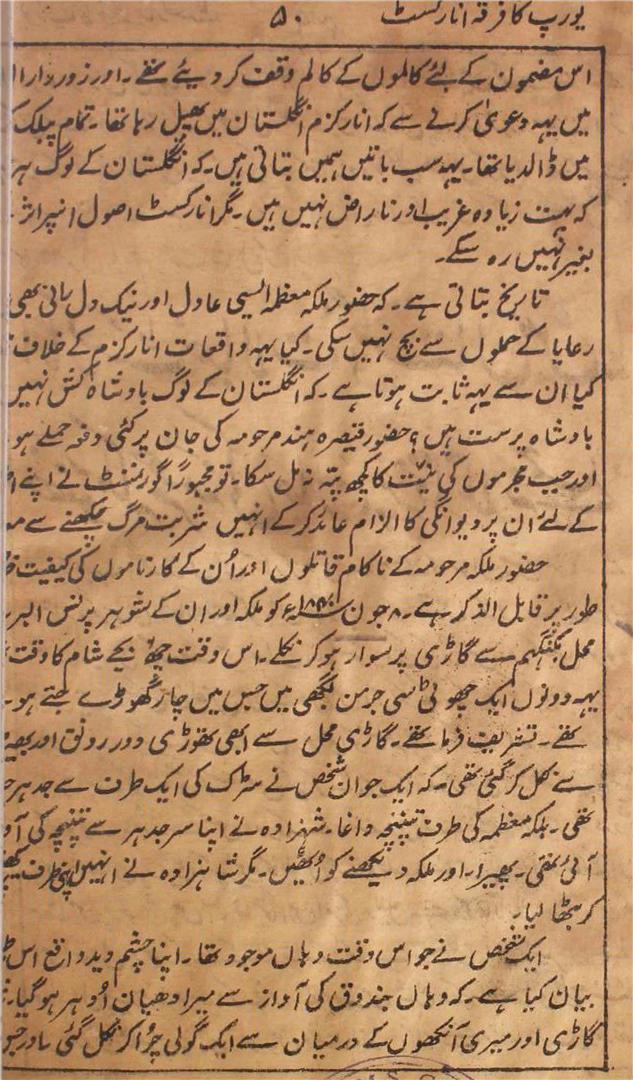 یورپ کا فرقہ انارکسٹ ۵۰
اس مضمون کے لئے کالموں کے کالم وقف کر دیئے تھے۔ اور زوردار ال
میں یہہ دعویٰ کرنے سے کہ انارکزم انگلستان میں پھیل رہا تھا۔ تمام پبلک ک
میں ڈالدیا تھا۔ یہہ سب باتیں ہمیں بتاتی ہیں۔ کہ انگلستان کے لوگ ہر
کہ بہت زیادہ غریب اور ناراض نہیں ہیں۔ مگر انارکسٹ اصول انپر اثر
بغیر نہیں رہ سکے۔
تاریخ بتاتی ہے۔ کہ حضور ملکہ معظمہ ایسی عادل اور نیک دل رانی بھی
رعایا کے حملوں سے بچ نہیں سکی۔ کیا یہہ واقعات انارکزم کے خلاف
کیا ان سے یہہ ثابت ہوتا ہے۔ کہ انگلستان کے لوگ بادشاہ کش نہیں
بادشاہ پرست ہیں؟ حضور قیصرہ ہند مرحومہ کی جان پر کئی دفعہ حملے ہو
اور جب مجرموں کی نیت کا کچھ پتہ نہ مل سکا۔ تو مجبوراً گورنمنٹ نے اپنے
کے لئے ان پر دیوانگی کا الزام عائد کر کے انہیں شربت مرگ چکھنے سے
حضور ملکہ مرحومہ کے ناکام قاتلوں اور اُن کے کارناموں کی کیفیت
طور پر قابل الذکر ہے۔ ۸ جون ۱۸۴۰ء کو ملکہ اور ان کے شوہر پرنس البر
محل بکنگہم سے گاڑی پر سوار ہو کر نکلے۔ اس وقت چھ بجے شام کا وقت
یہہ دونوں ایک چھوٹی ٹسی جرمن بگھی میں جس میں چار گھوڑے جتے ہو
تھے۔ تشریف فرما تھے۔ گاڑی محل سے ابھی تھوڑی دور رونق اور بھیڑ
سے نکل کر گئی تھی۔ کہ ایک جوان شخص نے سڑک کی ایک طرف سے جدہر
تھی۔ ملکہ معظمہ کی طرف تپنچہ داغا۔ شہزادہ نے اپنا سر جدہر سے تپنچہ کی آو
آئی تھی۔ پھیرا۔ اور ملکہ دیکھنے کو اُٹھیں۔ مگر شاہزادہ نے انہیں اپنی طرف کھینچ
کر بٹھا لیا۔
ایک شخص نے جو اس وقت وہاں موجود تھا۔ اپنا چشم دید واقع اس
بیان کیا ہے۔ کہ وہاں بندوق کی آواز سے میرا دھیان اُدہر ہو گیا۔
گاڑی اور میری آنکھوں کے درمیان سے ایک گولی چرا کر نکل گئی۔ اور